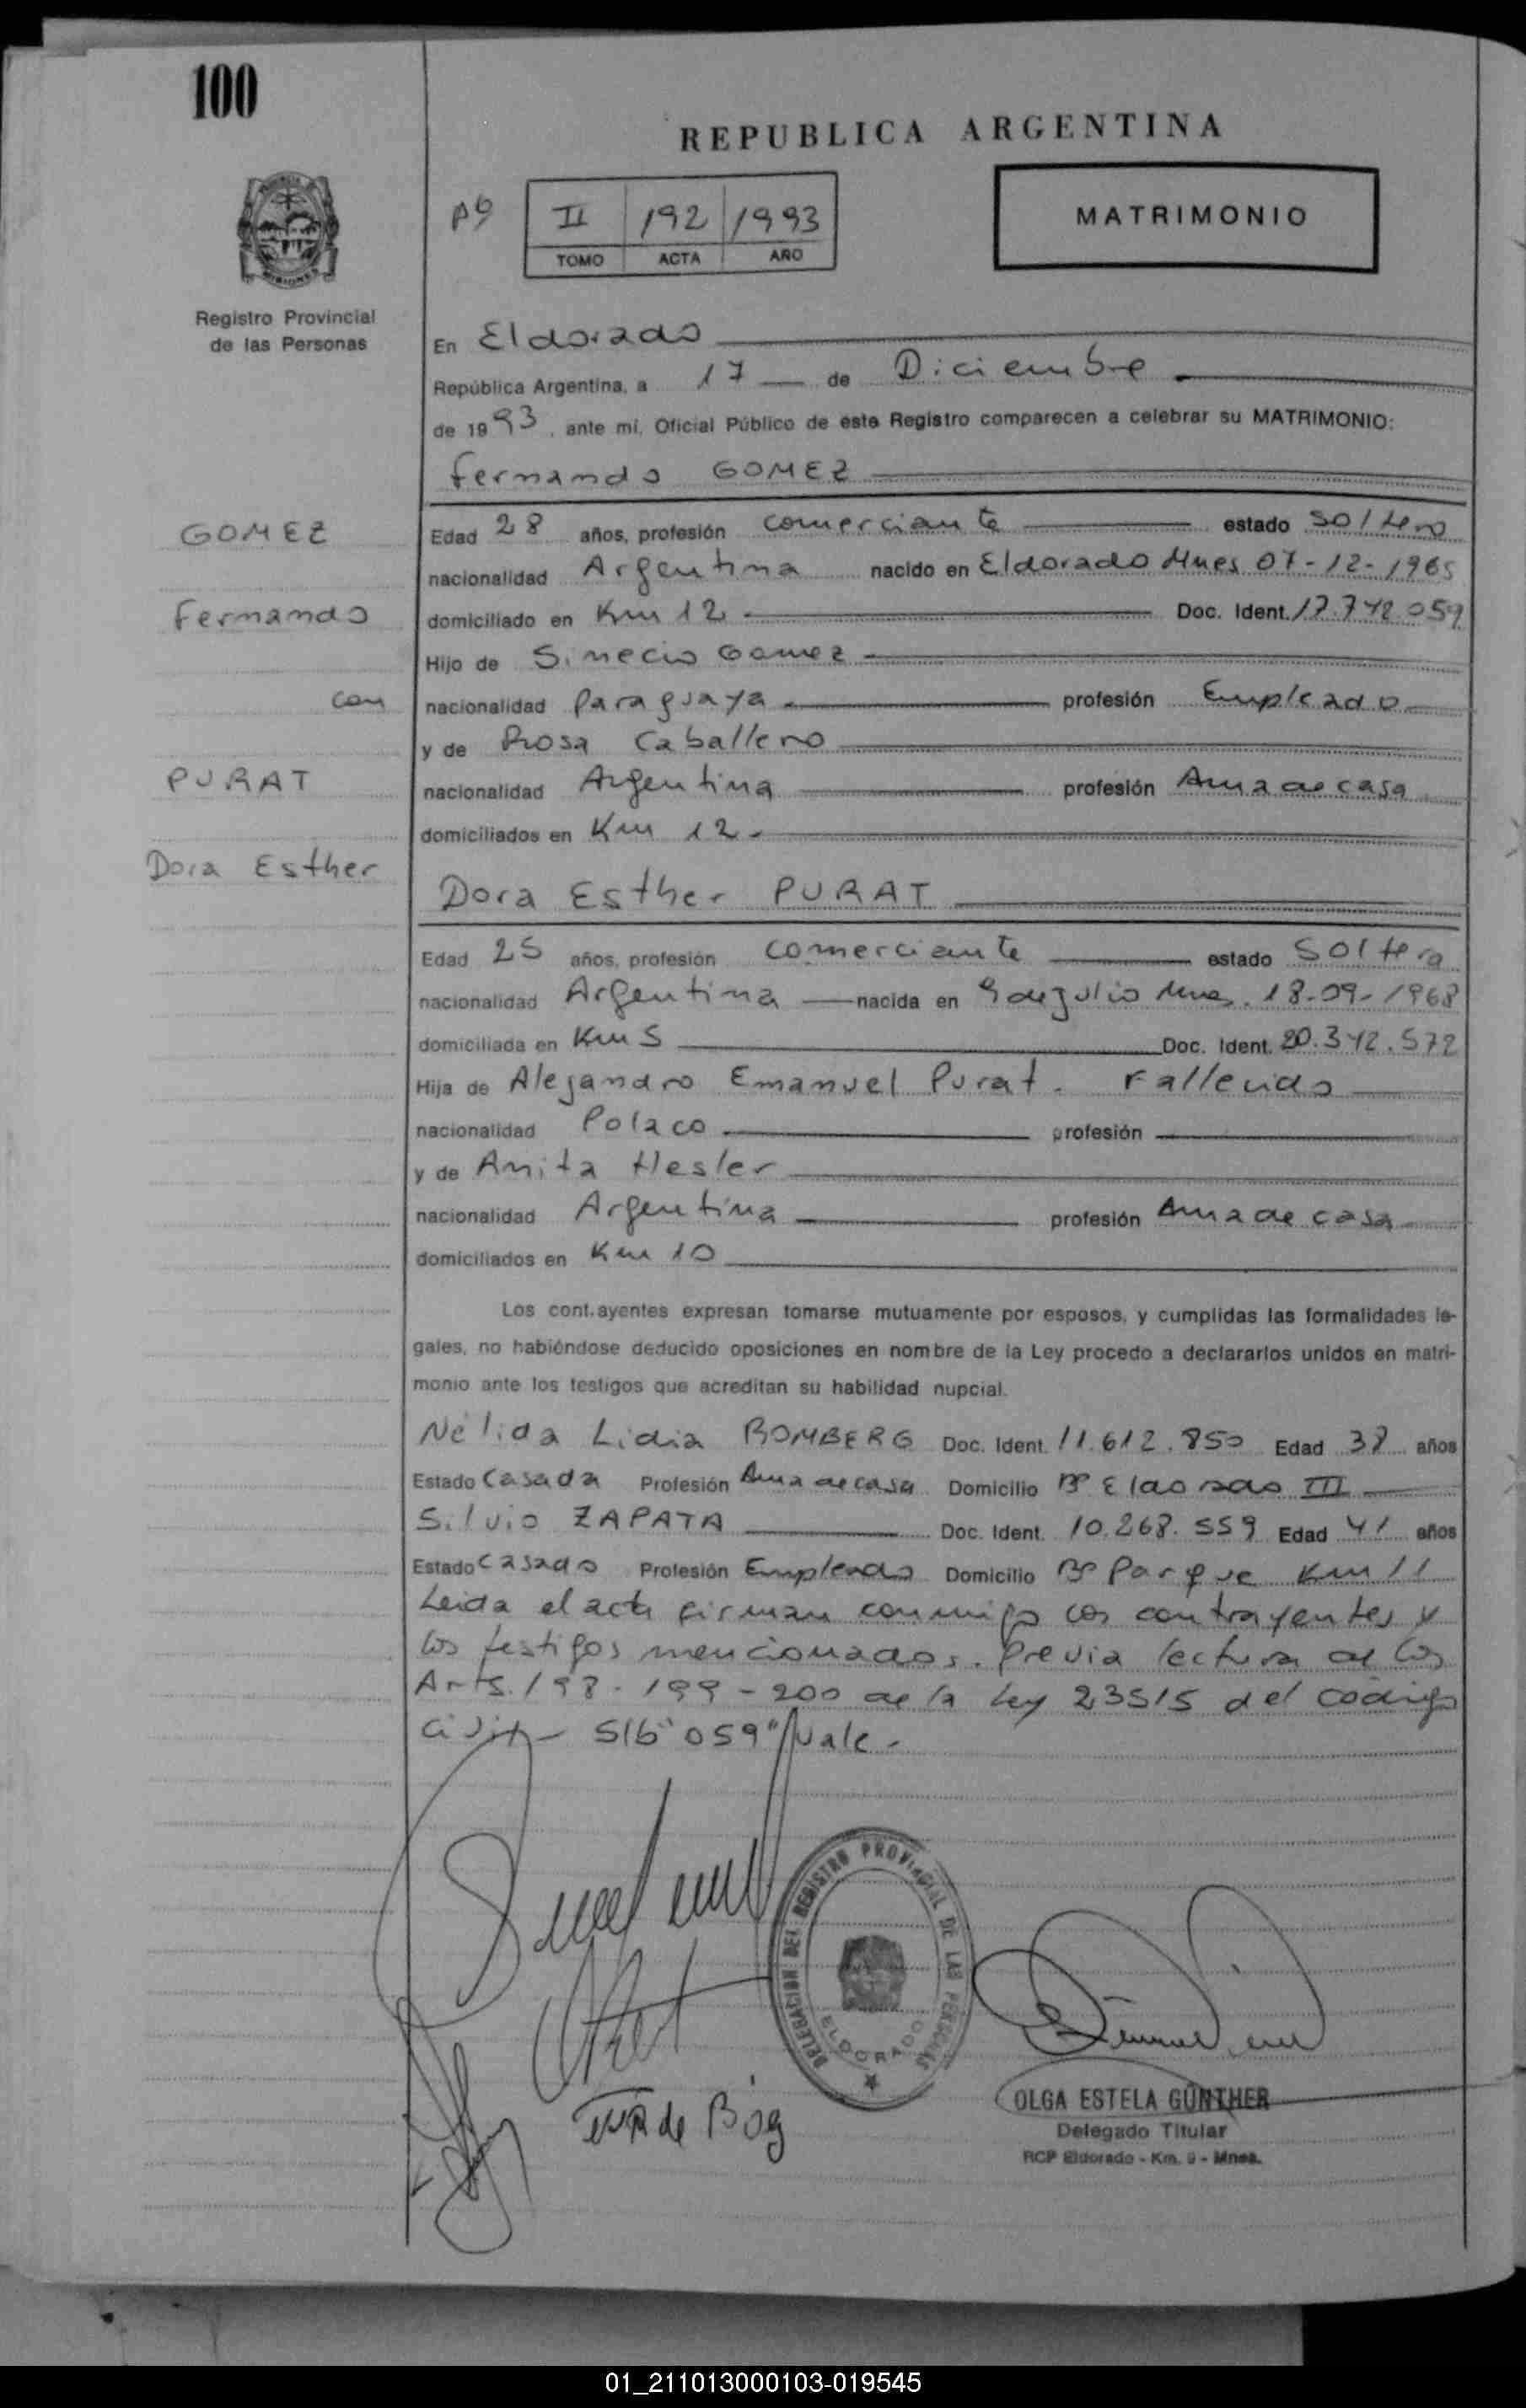 100
REPUBLICA ARGENTINA
II 192 1993
TOMO ACTA AÑO
MATRIMONIO
Registro Provincial
de las Personas
En Eldorado
República Argentina, a 17 de Diciembre
de 1993, ante mí, Oficial Público de este Registro comparecen a celebrar su MATRIMONIO:
Fernando GOMEZ
GOMEZ
Edad 28 años, profesión comerciante estado soltero
nacionalidad Argentina nacido en Eldorado Mnes 07-12-1965
Fernando
domiciliado en Km 12 Doc. Ident. 17.742.059
Hijo de Sinecio Gomez
con
nacionalidad Paraguaya profesión Empleado
y de Rosa Caballero
PURAT
nacionalidad Argentina profesión Ama de casa
domiciliados en Km 12.
Dora Esther
Dora Esther PURAT
Edad 25 años, profesión comerciante estado soltera
nacionalidad Argentina nacida en 9 de Julio Mnes. 18-09-1968
domiciliada en Km 5 Doc. Ident. 20.342.572
Hija de Alejandro Emanuel Purat. Fallecido
nacionalidad Polaco profesión
y de Anita Hesler
nacionalidad Argentina profesión Ama de casa
domiciliados en Km 10
Los cont.ayentes expresan tomarse mutuamente por esposos, y cumplidas las formalidades le-
gales, no habiéndose deducido oposiciones en nombre de la Ley procedo a declararlos unidos en matri-
monio ante los testigos que acreditan su habilidad nupcial.
Nélida Lidia BOMBERG Doc. Ident. 11.612.850 Edad 38 años
Estado Casada Profesión Ama de casa Domicilio Bº Eldorado III
Silvio ZAPATA Doc. Ident. 10.268.559 Edad 41 años
Estado Casado Profesión Empleado Domicilio Bº Parque Km 11
Leida el acta firman conmigo los contrayentes y
los testigos mencionados. Previa lectura de los
Arts. 198-199-200 de la Ley 23515 del código
civil- S/b "059" Vale-
DELEGACION DEL REGISTRO PROVINCIAL DE LAS PERSONAS
ELDORADO
de
OLGA ESTELA GÜNTHER
Delegado Titular
RCP Eldorado - Km. 9 - Mnes.
01_211013000103-019545